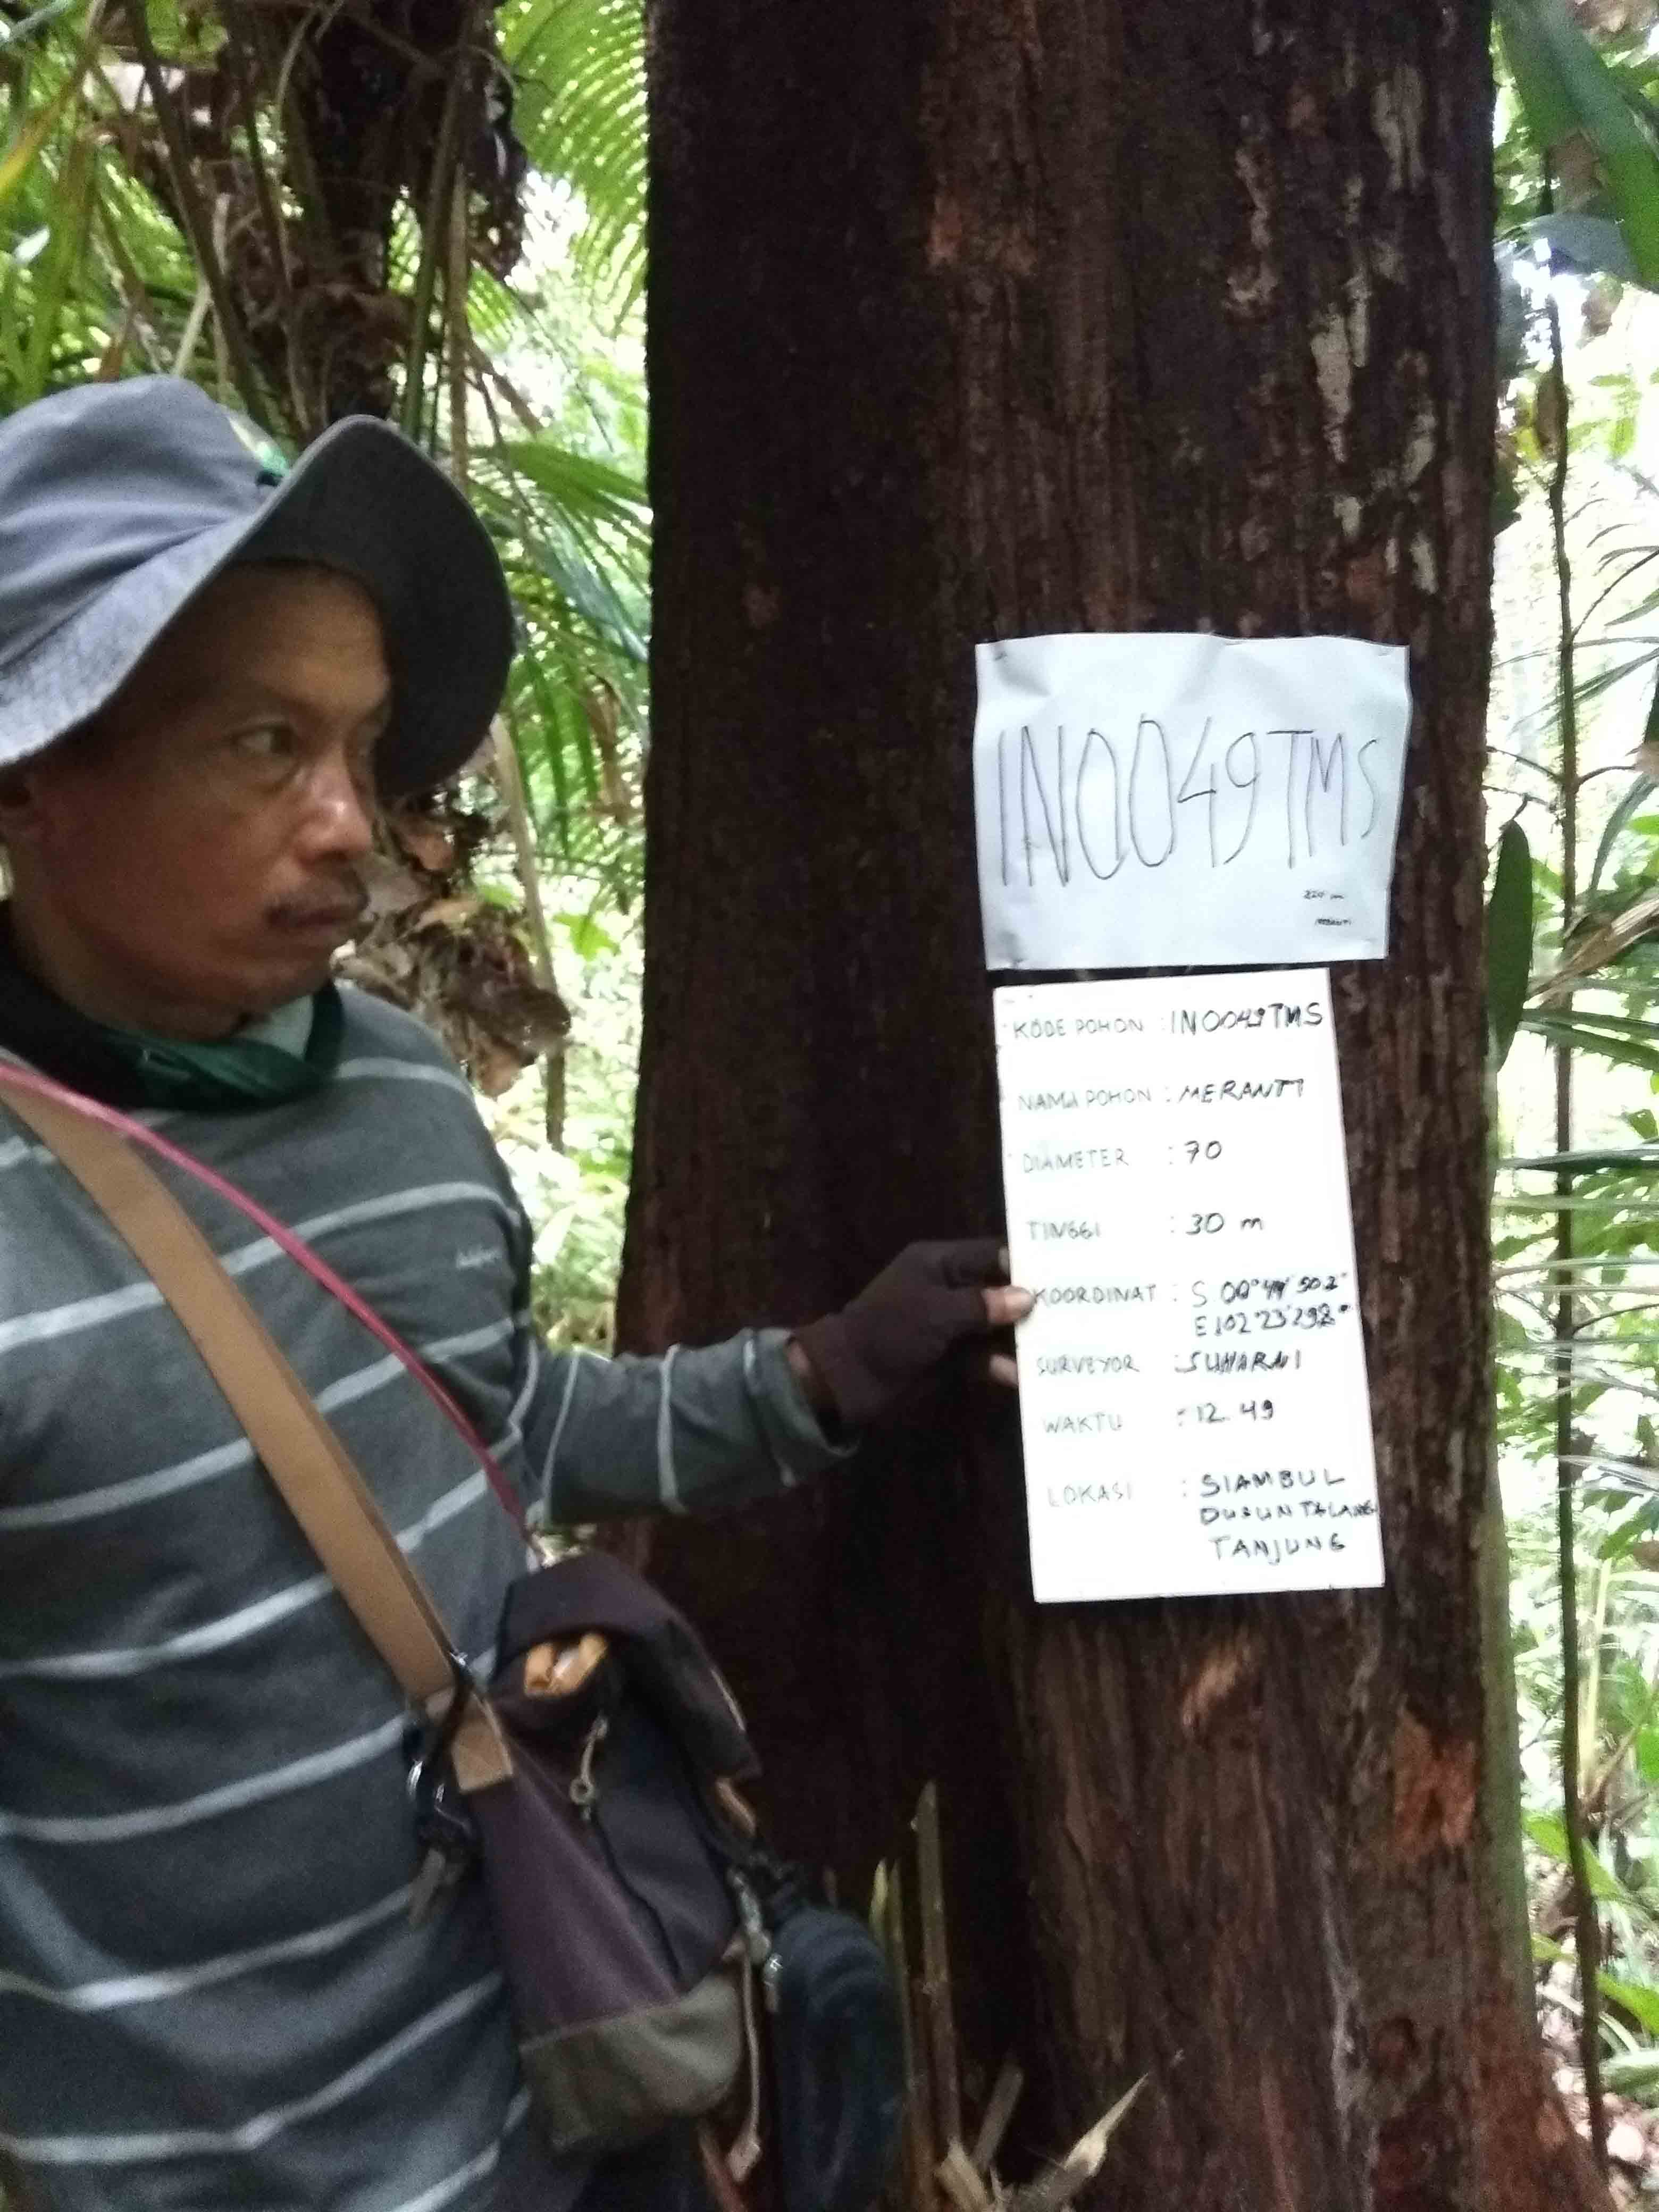 INO049TMS
220 m
MERANTI
KODE POHON : INO049TMS
NAMA POHON : MERANTI
DIAMETER : 70
TINGGI : 30 m
KOORDINAT : S 00°49' 50.2"
E 102°23'29.2"
SURVEYOR : SUHARNI
WAKTU : 12.49
LOKASI : SIAMBUL
DUSUN TALANG
TANJUNG